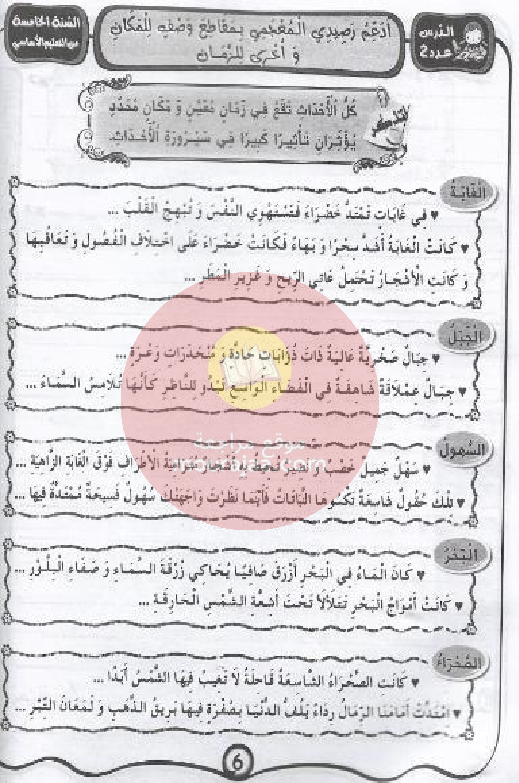 الدّرس
عدد 2
أَدْعَمُ رَصِيدِي الْمُعْجَمِي بِمَقَاطِعَ وَصْفٍ لِلْمَكَانِ
وَ أُخْرَى لِلزَّمَانِ
السّنة الخامسة
من التعليم الأساسي
كُلُّ الْأَحْدَاثِ تَقَعُ فِي زَمَانٍ مُعَيَّنٍ وَ مَكَانٍ مُحَدَّدٍ
يُؤَثِّرَانِ تَأْثِيرًا كَبِيرًا فِي سَيْرُورَةِ الْأَحْدَاثِ.
الْغَابَةُ
♥ فِي غَابَاتٍ تَمْتَدُّ خَضْرَاءَ فَتَسْتَهْوِي النَّفْسَ وَ تُبْهِجُ الْقَلْبَ ...
♥ كَانَتْ الْغَابَةُ أَشَدَّ سِحْرًا وَ بَهَاءً فَكَانَتْ خَضْرَاءَ عَلَى اخْتِلَافِ الْفُصُولِ وَ تَعَاقُبِهَا
وَ كَانَتِ الْأَشْجَارُ تَحْتَمِلُ عَاتِي الرِّيحِ وَ غَزِيرَ الْمَطَرِ ...
الْجَبَلُ
♥ جِبَالٌ صَخْرِيَّةٌ عَالِيَةٌ ذَاتُ ذُؤَابَاتٍ حَادَّةٍ وَ مُنْحَدَرَاتٍ وَعْرَةٍ ...
♥ جِبَالٌ عِمْلَاقَةٌ شَاهِقَةٌ فِي الْفَضَاءِ الْوَاسِعِ تَبْدُو لِلنَّاظِرِ كَأَنَّهَا تُلَامِسُ السَّمَاءَ ...
السُّهُولُ
♥ سَهْلٌ جَمِيلٌ خَصْبٌ وَ نَضِيرٌ تُحِيطُ بِهِ أَشْجَارٌ مُتَرَامِيَةُ الْأَطْرَافِ فَوْقَ الْغَابَةِ الزَّاهِيَةِ ...
♥ تِلْكَ حُقُولٌ شَاسِعَةٌ تَكْسُوهَا النَّبَاتَاتُ فَأَيْنَمَا نَظَرْتَ وَاجَهَتْكَ سُهُولٌ فَسِيحَةٌ مُمْتَدَّةٌ فِيهَا ...
موقع مراجعة
الْبَحْرُ
♥ كَانَ الْمَاءُ فِي الْبَحْرِ أَزْرَقَ صَافِيًا يُحَاكِي زُرْقَةَ السَّمَاءِ وَ صَفَاءَ الْبِلَّوْرِ ...
♥ كَانَتْ أَمْوَاجُ الْبَحْرِ تَتَلَأْلَأُ تَحْتَ أَشِعَّةِ الشَّمْسِ الْحَارِقَةِ ...
الصَّحْرَاءُ
♥ كَانَتِ الصَّحْرَاءُ الشَّاسِعَةُ قَاحِلَةً لَا تَغِيبُ فِيهَا الشَّمْسُ أَبَدًا ...
♥ امْتَدَّتْ أَمَامَنَا الرِّمَالُ رِدَاءً يَلُفُّ الدُّنْيَا بِصُفْرَةٍ فِيهَا بَرِيقُ الذَّهَبِ وَ لَمَعَانُ التِّبْرِ ...
6